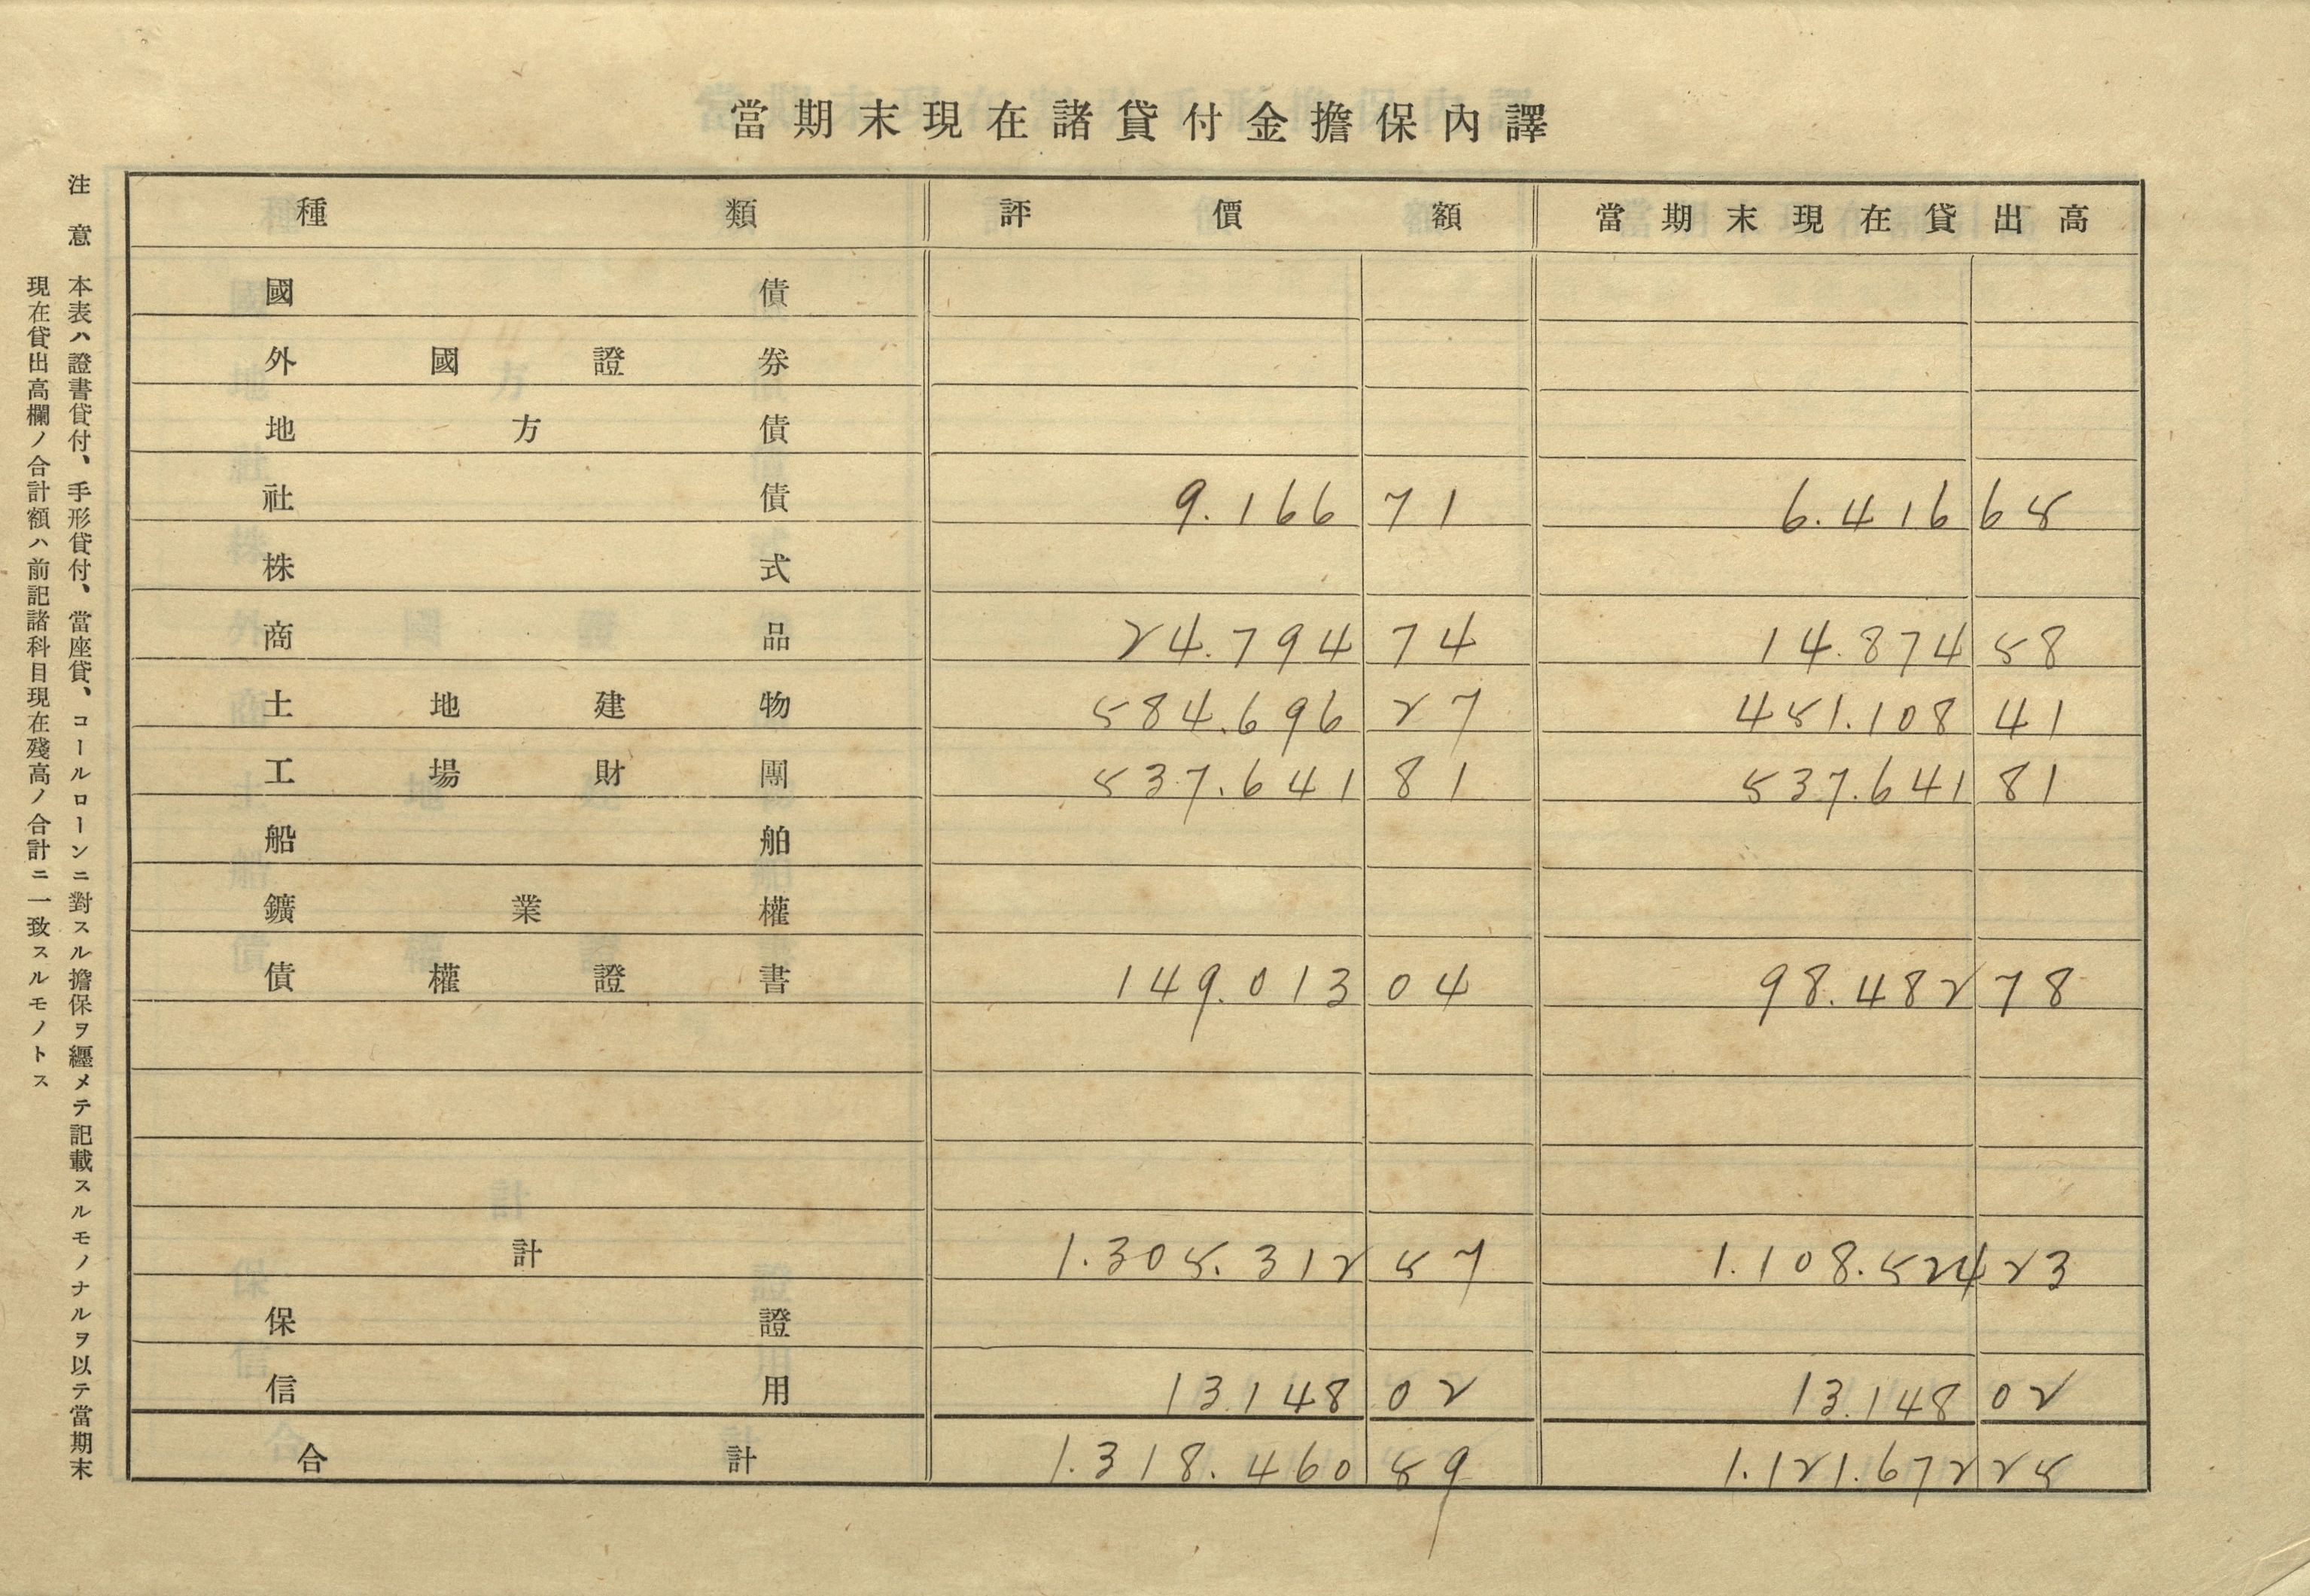 當期末現在諸貸付金擔保內譯
種類 評價額 當期末現在貸出高
國債
外國證券
地方債
社債 9.166 71 6.416 65
株式
商品 24.794 74 14.874 58
土地建物 584.696 27 451.108 41
工場財團 537.641 81 537.641 81
船舶
鑛業權
債權證書 149.013 04 98.482 78
計 1.305.312 57 1.108.524 23
保證
信用 13.148 02 13.148 02
合計 1.318.460 59 1.121.672 25
注意 本表ハ證書貸付、手形貸付、當座貸、コールローンニ對スル擔保ヲ纒メテ記載スルモノナルヲ以テ當期末
現在貸出高欄ノ合計額ハ前記諸科目現在殘高ノ合計ニ一致スルモノトス